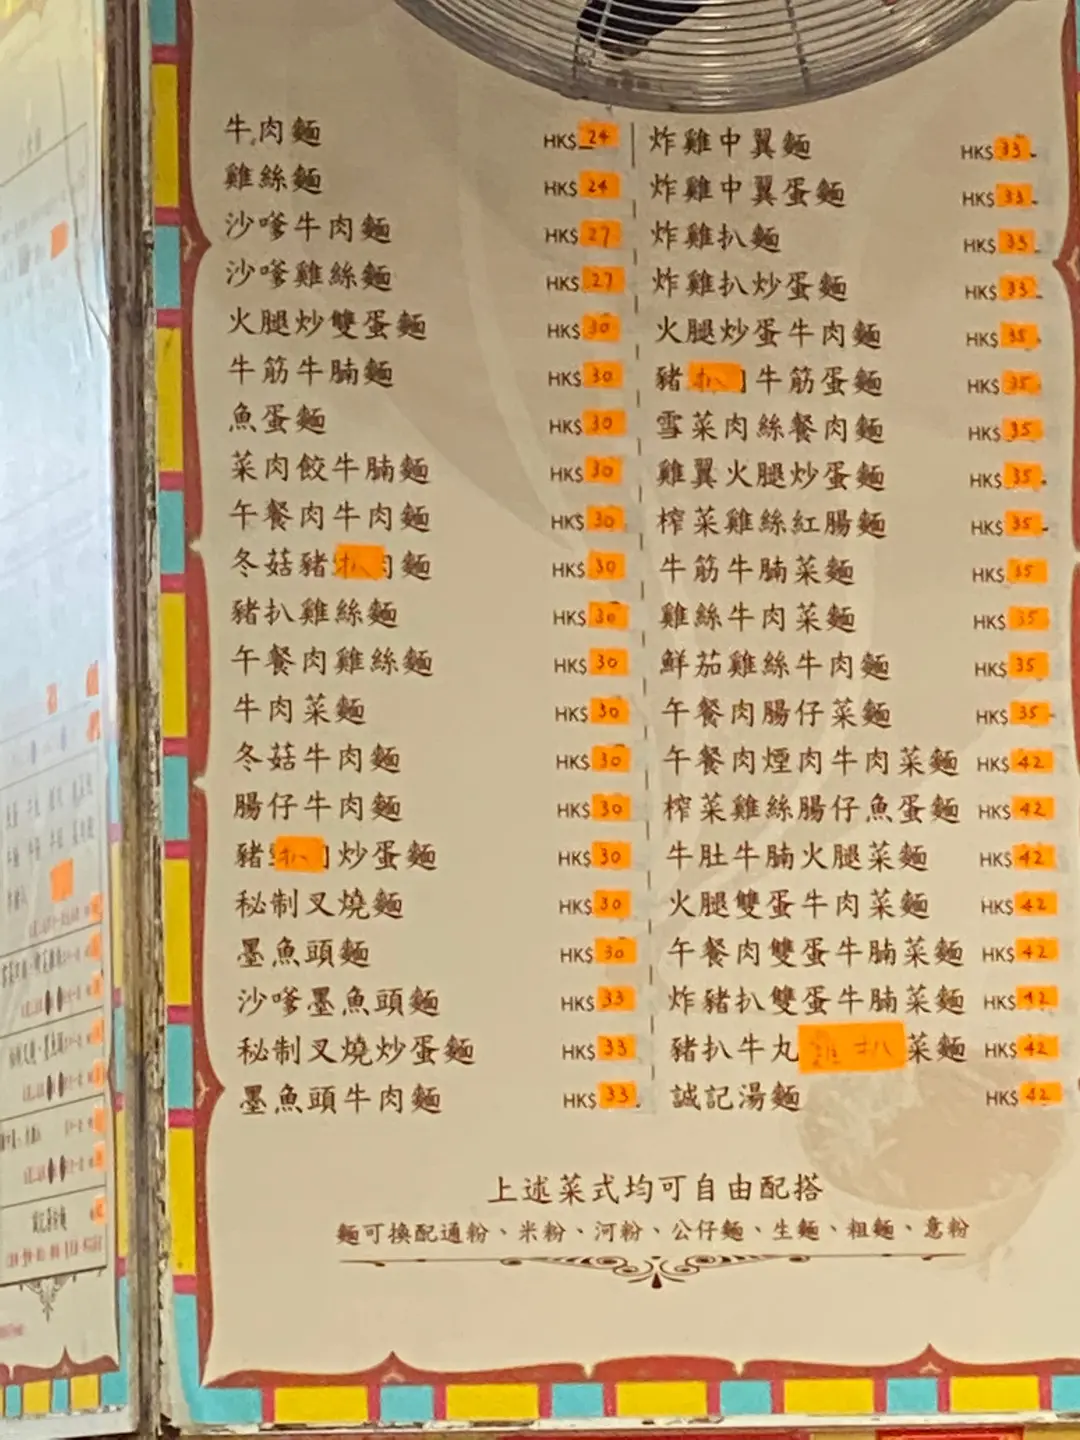 牛肉麵 HK$ 24
雞絲麵 HK$ 24
沙嗲牛肉麵 HK$ 27
沙嗲雞絲麵 HK$ 27
火腿炒雙蛋麵 HK$ 30
牛筋牛腩麵 HK$ 30
魚蛋麵 HK$ 30
菜肉餃牛腩麵 HK$ 30
午餐肉牛肉麵 HK$ 30
冬菇豬扒麵 HK$ 30
豬扒雞絲麵 HK$ 30
午餐肉雞絲麵 HK$ 30
牛肉菜麵 HK$ 30
冬菇牛肉麵 HK$ 30
腸仔牛肉麵 HK$ 30
豬扒炒蛋麵 HK$ 30
秘制叉燒麵 HK$ 30
墨魚頭麵 HK$ 30
沙嗲墨魚頭麵 HK$ 33
秘制叉燒炒蛋麵 HK$ 33
墨魚頭牛肉麵 HK$ 33
炸雞中翼麵 HK$ 33
炸雞中翼蛋麵 HK$ 33
炸雞扒麵 HK$ 33
炸雞扒炒蛋麵 HK$ 33
火腿炒蛋牛肉麵 HK$ 35
豬扒牛筋蛋麵 HK$ 35
雪菜肉絲餐肉麵 HK$ 35
雞翼火腿炒蛋麵 HK$ 35
榨菜雞絲紅腸麵 HK$ 35
牛筋牛腩菜麵 HK$ 35
雞絲牛肉菜麵 HK$ 35
鮮茄雞絲牛肉麵 HK$ 35
午餐肉腸仔菜麵 HK$ 35
午餐肉煙肉牛肉菜麵 HK$ 42
榨菜雞絲腸仔魚蛋麵 HK$ 42
牛肚牛腩火腿菜麵 HK$ 42
火腿雙蛋牛肉菜麵 HK$ 42
午餐肉雙蛋牛腩菜麵 HK$ 42
炸豬扒雙蛋牛腩菜麵 HK$ 42
豬扒牛丸雞扒菜麵 HK$ 42
誠記湯麵 HK$ 42
上述菜式均可自由配搭
麵可換配通粉、米粉、河粉、公仔麵、生麵、粗麵、意粉